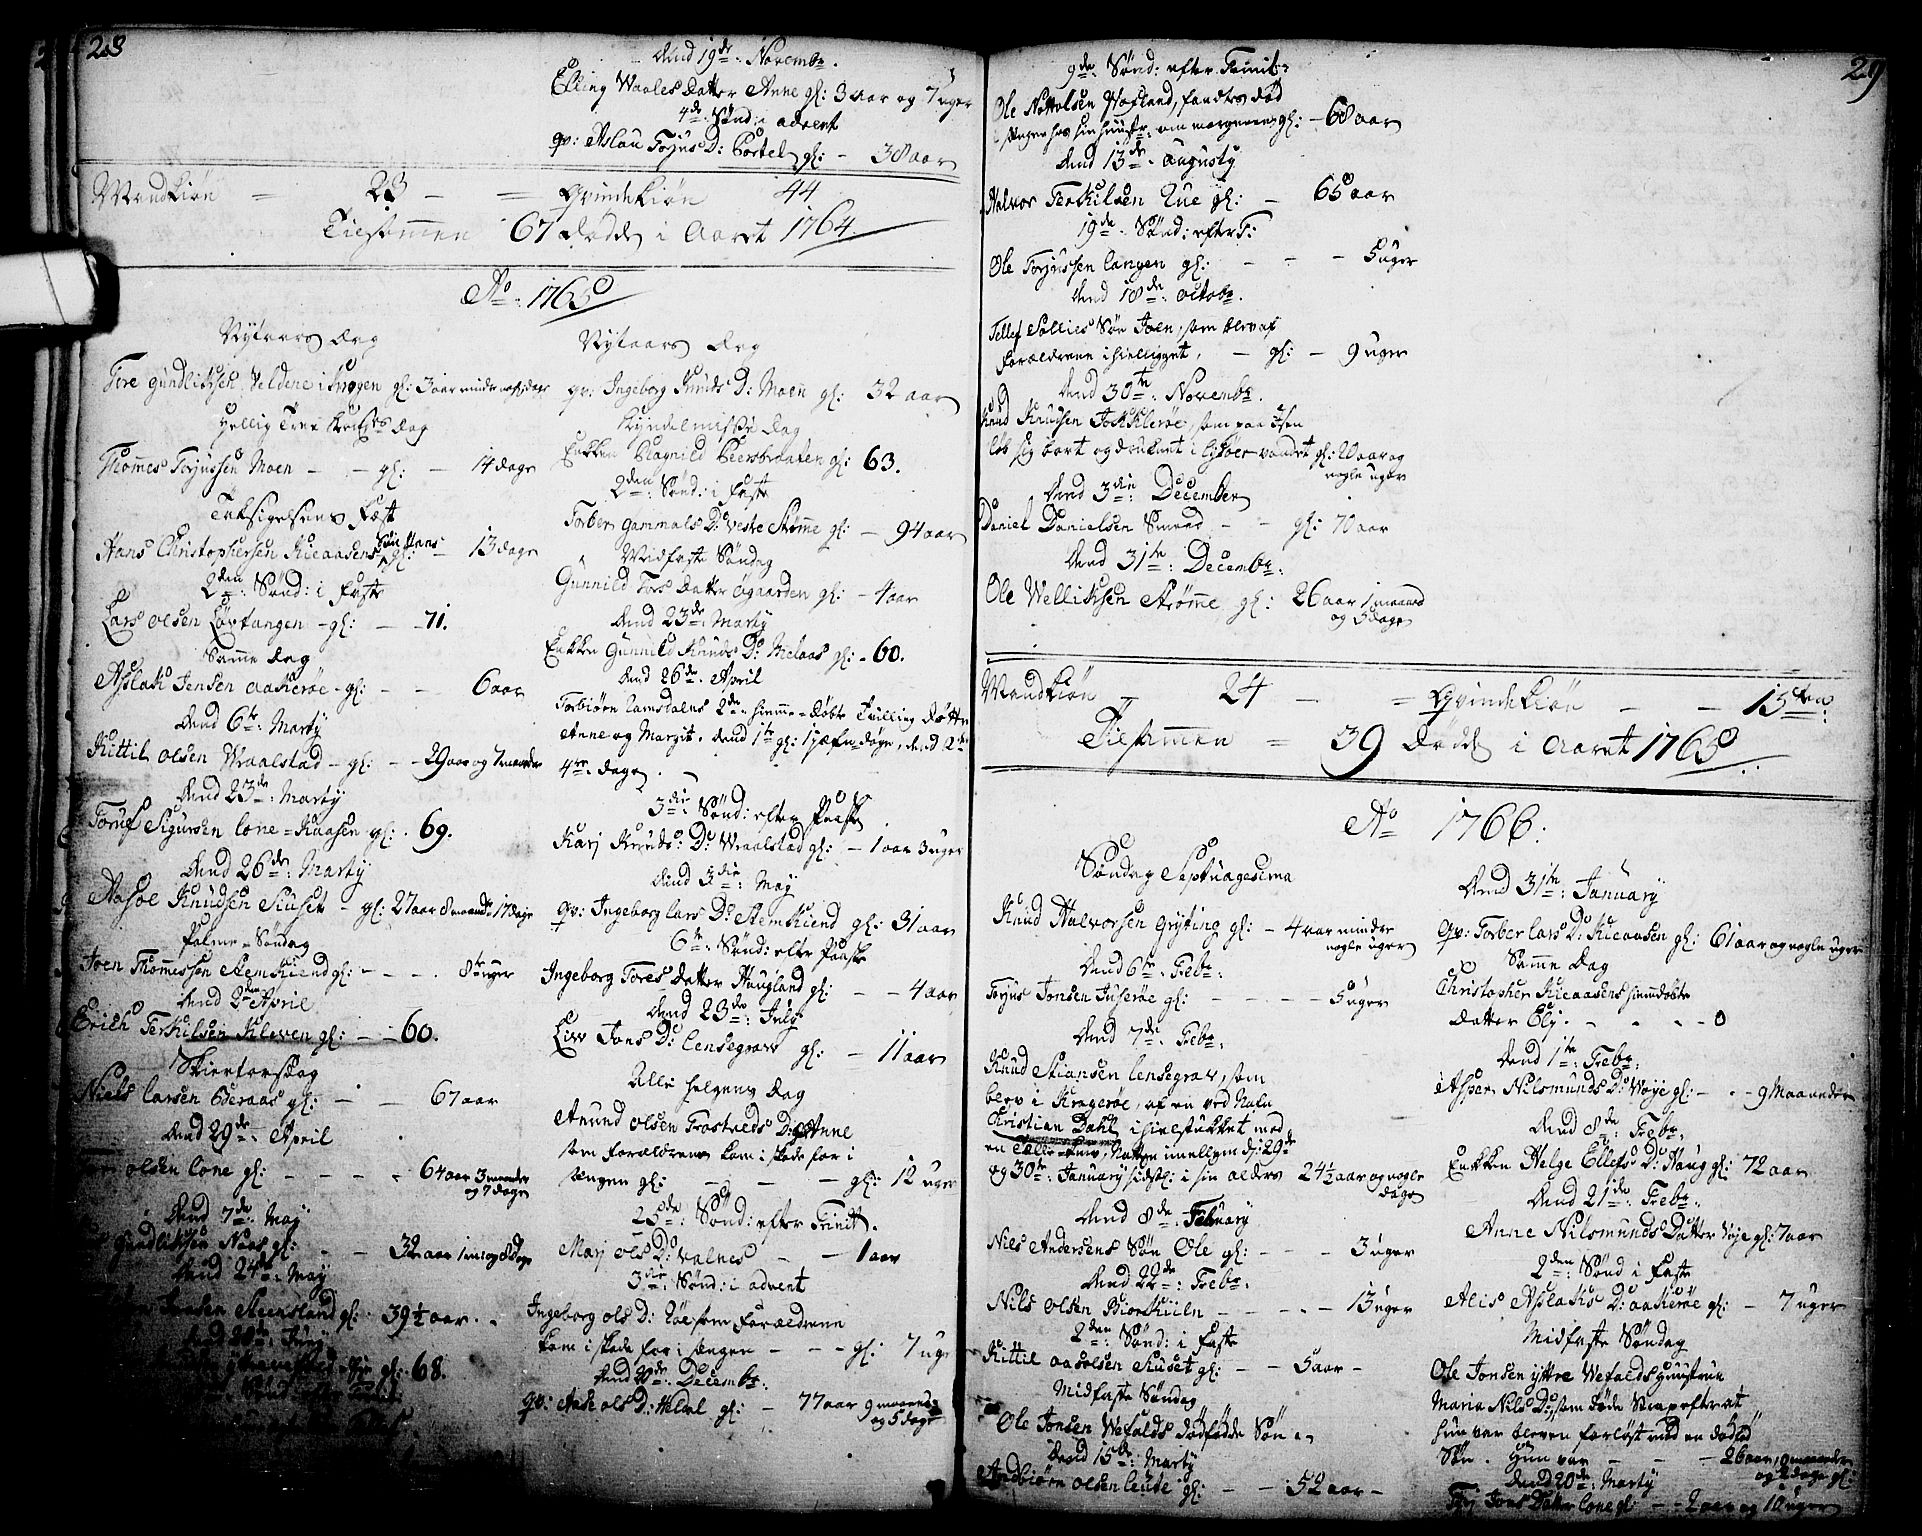 28
dend 19de Novembr.
Elling Waales datter Anne gl: 3 aar og 7 uger
4de Sønd: i advent
qv: Aslau Torjus D: Bortel gl: - 38 aar
Mandkiøn = 23 - = Qvindekiøn 44
Tilsammen 67 døde i Aaret 1764.
Ao 1765
Nytaars dag
Tore Gundliksen gl: 3 aar
Hellig Tree Kongers dag
Thommes Torjussen Moen - - gl: - 14 dage
Taksigelsens Fest
Hans Christophersen Kieaasens Søn Hans gl: - 13 dage
2den Sønd: i Faste
Lars Olsen Løvtangen - gl: - 71.
Samme dag
Aslak Jensen Aakerøe - gl: - - 6 aar
dend 6te Marty
Kittil Olsen Vraalstad - gl: - - 29 aar og 7 maaneder
dend 23de Marty
Toruf Sigursen Lone-Kaasen gl: . 69.
dend 26de Marty
Aasoe Knudsen Siuset - gl: 27 aar 8 maand: 17 dage
Palme-Søndag
Joen Thommessen Stemkiend gl: - - . 8te uger
dend 2den April
Erich Terkilsen Kleven gl: - - 60.
Skiertorsdag
Niels Larsen Ederaas gl: - - 67 aar
dend 29de April
Olsen Lone gl: - - - - 64 aar 3 maaneder
og 7 dage
dend 7de May
Gundliksen Næs gl: - - 32 aar 1 m: og 8 dage
dend 24de May
Jensen Steensland gl: 39 1/2 aar . .
gl: 68.
Nytaars dag
qv: Ingeborg Knuds D: Moen gl: 32 aar
Kyndelmisse dag
Enken Ragnild Beersbraaten gl: 63.
2den Sønd: i Faste
Torber Gammals D: Veste Strømme gl: - 94 aar
Midfaste Søndag
Gunnild Tors datter Øgaarden gl: - 4 aar
dend 23de Marty
Enken Gunnild Knuds D: Melaas gl: - 60.
dend 26de April
Torbiørn Lamsdalens 2de hiemme-døbte Tvilling døttre
Anne og Margit. dend 1te gl: døgn, dend 2den
4re dage.
3die Sønd: efter Paaske
Karj Knuds: D: Vraalstad gl: - 1 aar 3 uger
dend 3die May
qv: Ingeborg Lars D: Stemkiend gl: 31 aar
6te Sønd: efter Paaske
Ingeborg Tores datter Haugland gl: - - 4 aar
dend 23de July
Liv Jons D: Lensegrav gl: - 11 aar
Alle helgens dag
Anund Olsen Trostveds D: Anne
som forældrene kom i skade for i
sængen gl: - - - gl: 12 uger
25de Sønd: efter Trinit.
Marj Ols D: Valnes - - 1 aar
3die Sønd: i advent
Ingeborg Ols D: Røe som Forældrene
kom i skade for i sengen - - - gl: 7 uger
dend 20de Decembr:
qv: Aase Ols D: Heldal gl: - 77 aar 9 maaned:
og 5 dage
29
9de Sønd: efter Trinit:
Ole Nottolsen Hofland, fandtes død
i Sengen hos sin hustr: om morgenen gl: - 68 aar
dend 13de Augusty
Halvor Terkilsen Rue gl: - 65 aar
19de Sønd: efter T:
Ole Torjussen Langen gl: - - - 5 uger
dend 18de Octobr.
Tellef Sollies Søn Joen, som blev af
forældrene ihielligget, - gl: - 9 uger
dend 30te Novembr.
Knud Knudsen Jokkleröe, som paa Isen
løb sig bort og druknet i Gjøer-vandet gl: 20 aar og
nogle uger
dend 3die December
Daniel Danielsen Smeed - - gl: 70 aar
dend 31te Decembr:
Ole Wellichsen Strømme gl: 26 aar 1 maaned
og 5 dage
Mandkiøn - 24 - = Qvindekiøn - - 15ten.
Tilsammen = 39 døde i Aaret 1765.
Ao 1766.
Søndag Septuagesima
Knud Halvorsen Gryting gl: - 4 aar mindre
nogle uger
dend 6te Febr:
Torjus Jonsen Juserøe gl: - - - - 5 uger
dend 7de Febr:
Knud Stiansen Lensegrav, som
blev i Kragerøe, af en ved Nafn
Christian Dahl ihielstukket med
en Tælle-Kniv, Natten imellem d: 29de
og 30te January sidstl: i sin alders 24 1/2 aar og nogle
dage
dend 8de February
Niels Andersens Søn Ole gl: - - - 3 uger
dend 22de Febr:
Nils Olsen Biorkiiln - - - . - 13 uger
2den Sønd: i Faste
Kittil Aasolsen Siuset gl: - - 5 aar -
Midfaste Søndag
Ole Jonsen Wefalds dødfødde Søn
dend 15de Marty
Andbiørn Olsen Leute gl: - - 52 aar -
dend 31te January
qv: Torber Lars D: Kieaasen gl: 61 aar og nogle uger
Samme dag
Christopher Kieaasens hiemdøbte
datter Elj. - - . . - 0
dend 1te Febr:
Asper Nilsmunds D: Voje gl: - . - 9 Maaneder
dend 8de Febr.
Enken Helge Ellefs D: Haug gl: 72 aar
dend 21de Febr:
Anne Nilsmunds Datter Voje gl: 7 aar
2den Sønd i Faste
Alis Aslaks D: Aakerøe gl: - 7 uger
Midfaste Søndag
Ole Jonsen yttre Wefalds Huustrue
Maria Nils D:, som døde Strax efter at
hun var bleven forløst med en dødfød
Søn. Hun var - - - 26 aar, 9 maaneder
og 2 dage gl:
dend 20de Marty
Jons Datter Lone gl: - - 2 aar og 10 uger